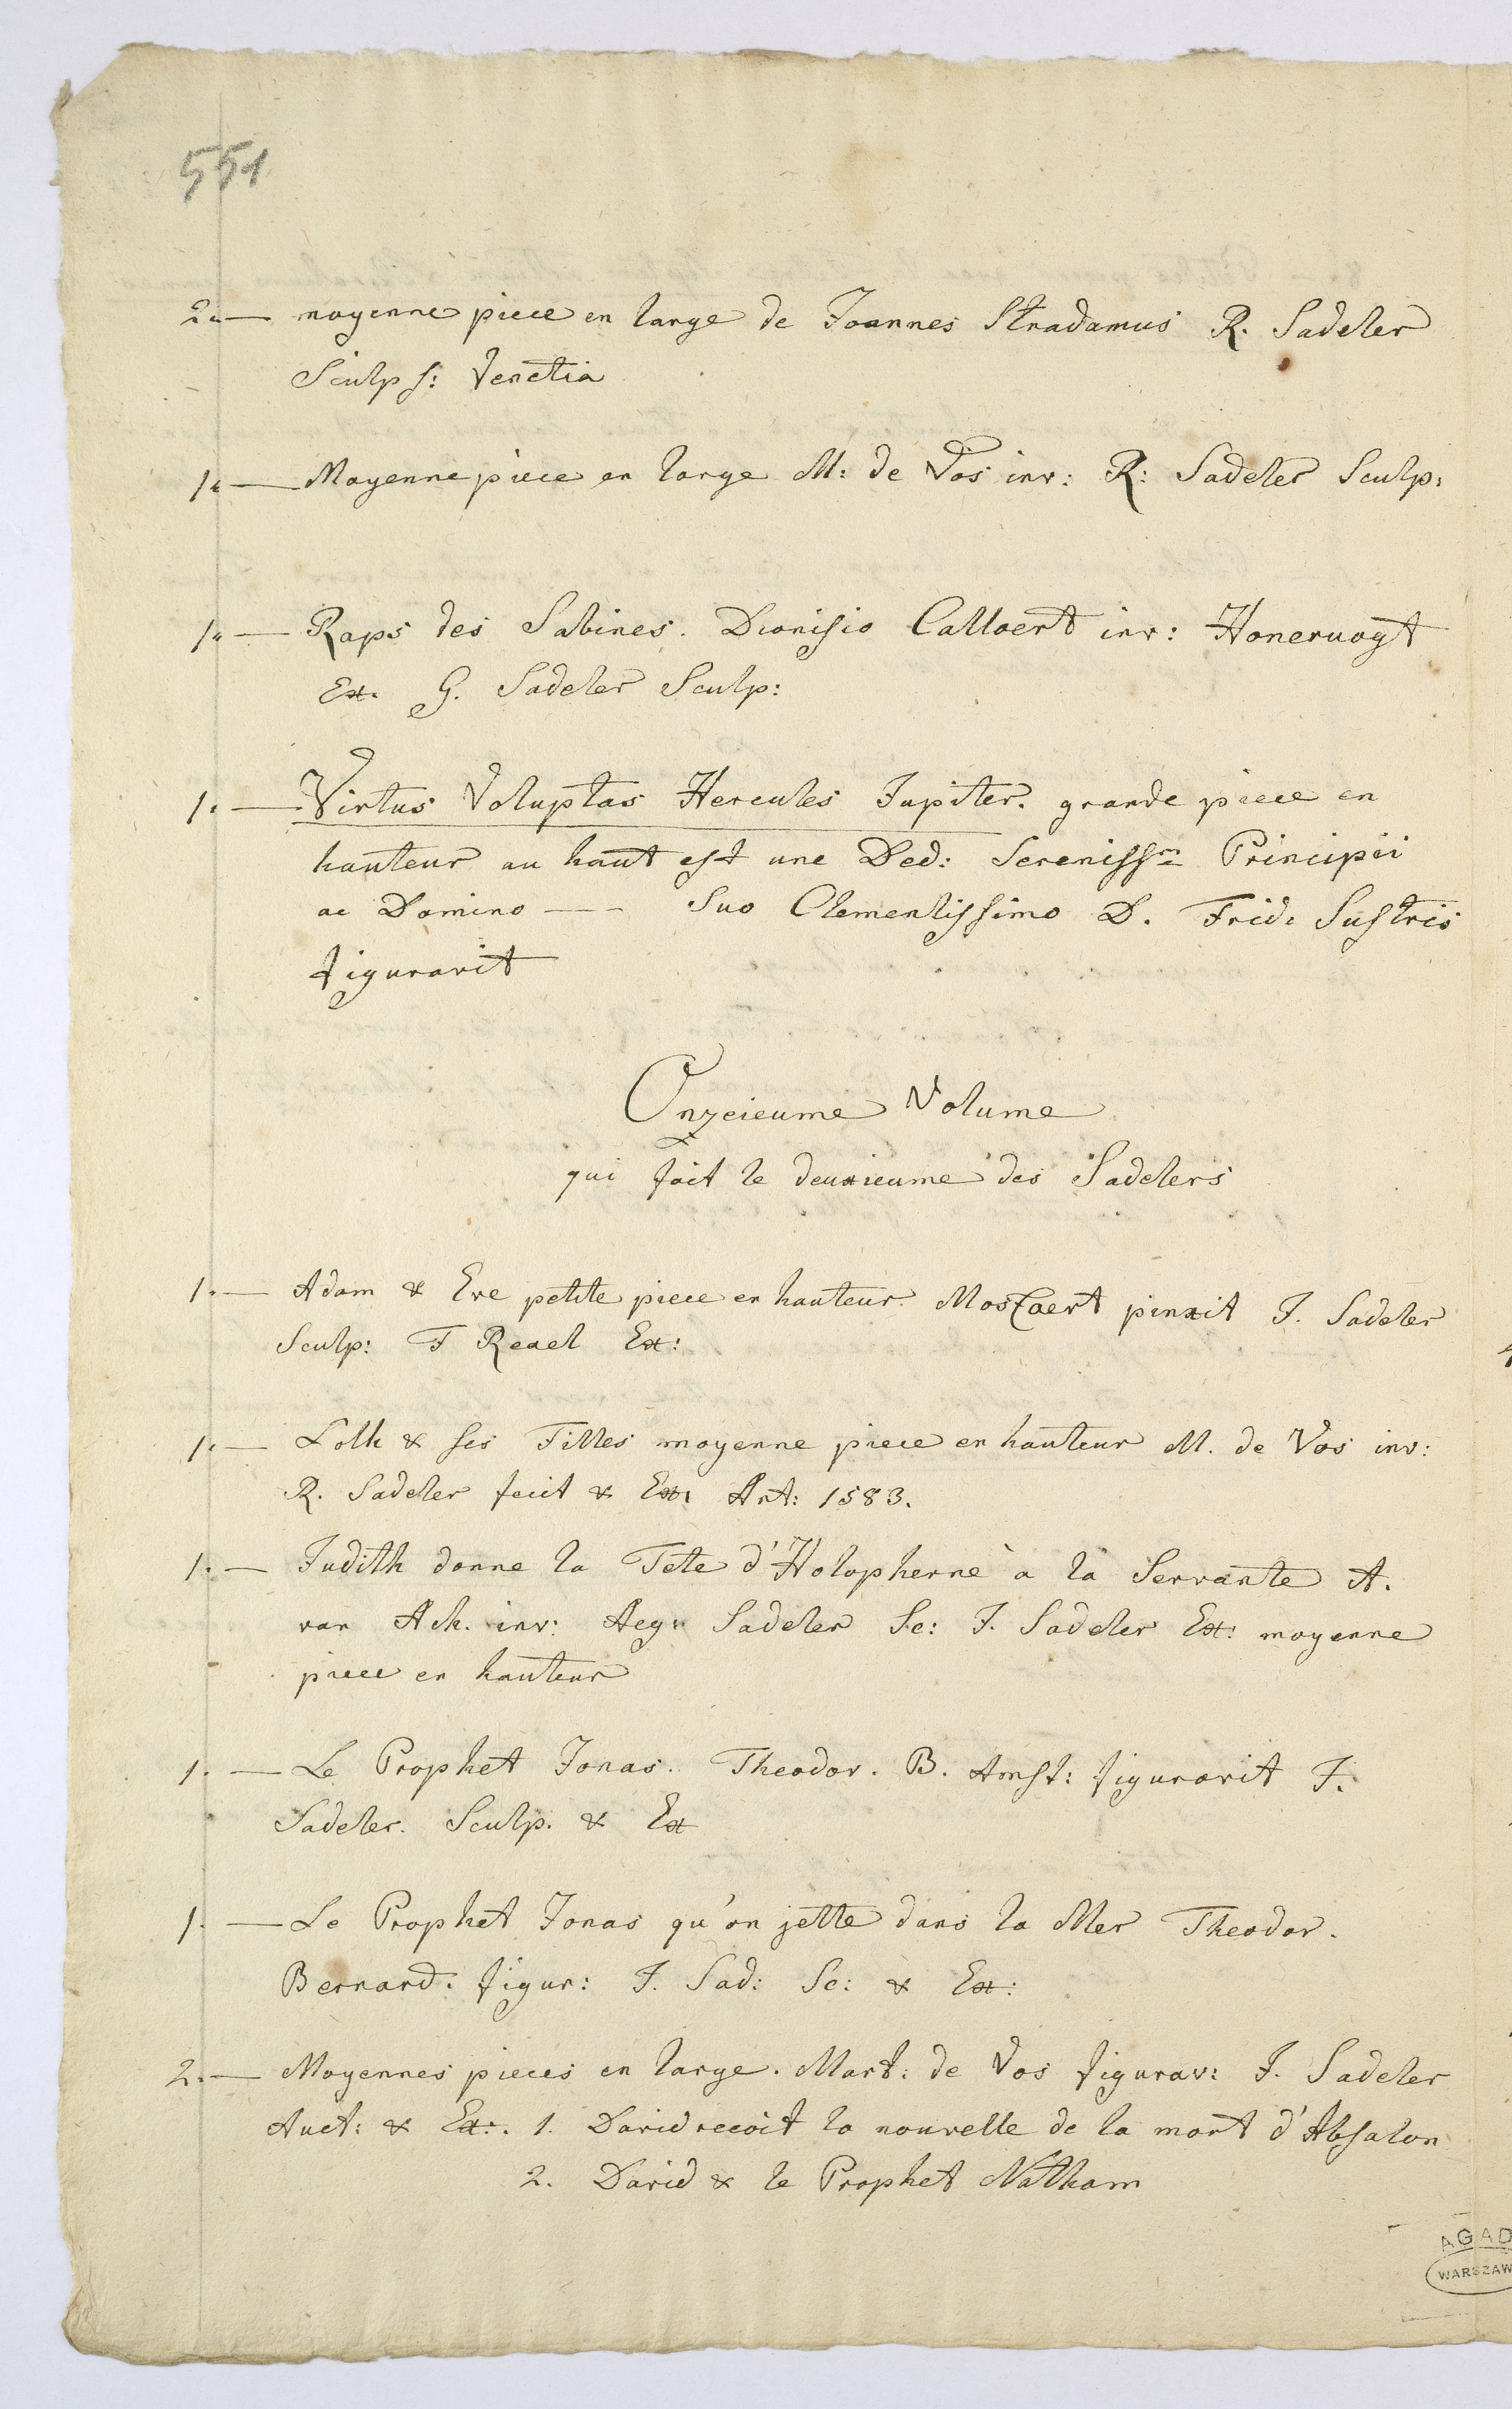 551
2. — moyenne piece en large de Joannes Stradamus R. Sadeler
Sculps: Venetia
1. — Moyenne piece en large M: de Vos inv: R: Sadeler Sculp:
1. — Raps des Sabines. Dionisio Callaert inv: Honeruogt
Ex. G. Sadeler Sculp:
1. — Virtus Voluptas Hercules Jupiter. grande piece en
hauteur au haut est une Ded: Serenissmo Principii
ac Domino — Suo Clementissimo D. Frid: Sustris
figuravit
Onzeieume Volume
qui fait le deuxieume des Sadelers
1. — Adam & Eve petite piece en hauteur. Mostaert pinxit J. Sadeler
Sculp: F Reael Ex:
1. — Loth & ses Filles moyenne piece en hauteur M. de Vos inv:
R. Sadeler fecit & Ex: Ant: 1583.
1. — Judith donne la Tete d'Holopherne à la Servante A.
van Ach. inv: Aeg: Sadeler Sc: J. Sadeler Ex: moyenne
piece en hauteur
1. — Le Prophet Jonas. Theodor. B. Amst: figuravit J.
Sadeler. Sculp. & Ex
1. — Le Prophet Jonas qu'on jette dans la Mer Theodor.
Bernard. figur: J. Sad: Sc: & Ex:
2. — Moyennes pieces en large. Mart: de Vos figurav: J. Sadeler
Auct: & Ex:. 1. David recoit la nouvelle de la mort d'Absalon
2. David & le Prophet Natham
AGAD
WARSZAW